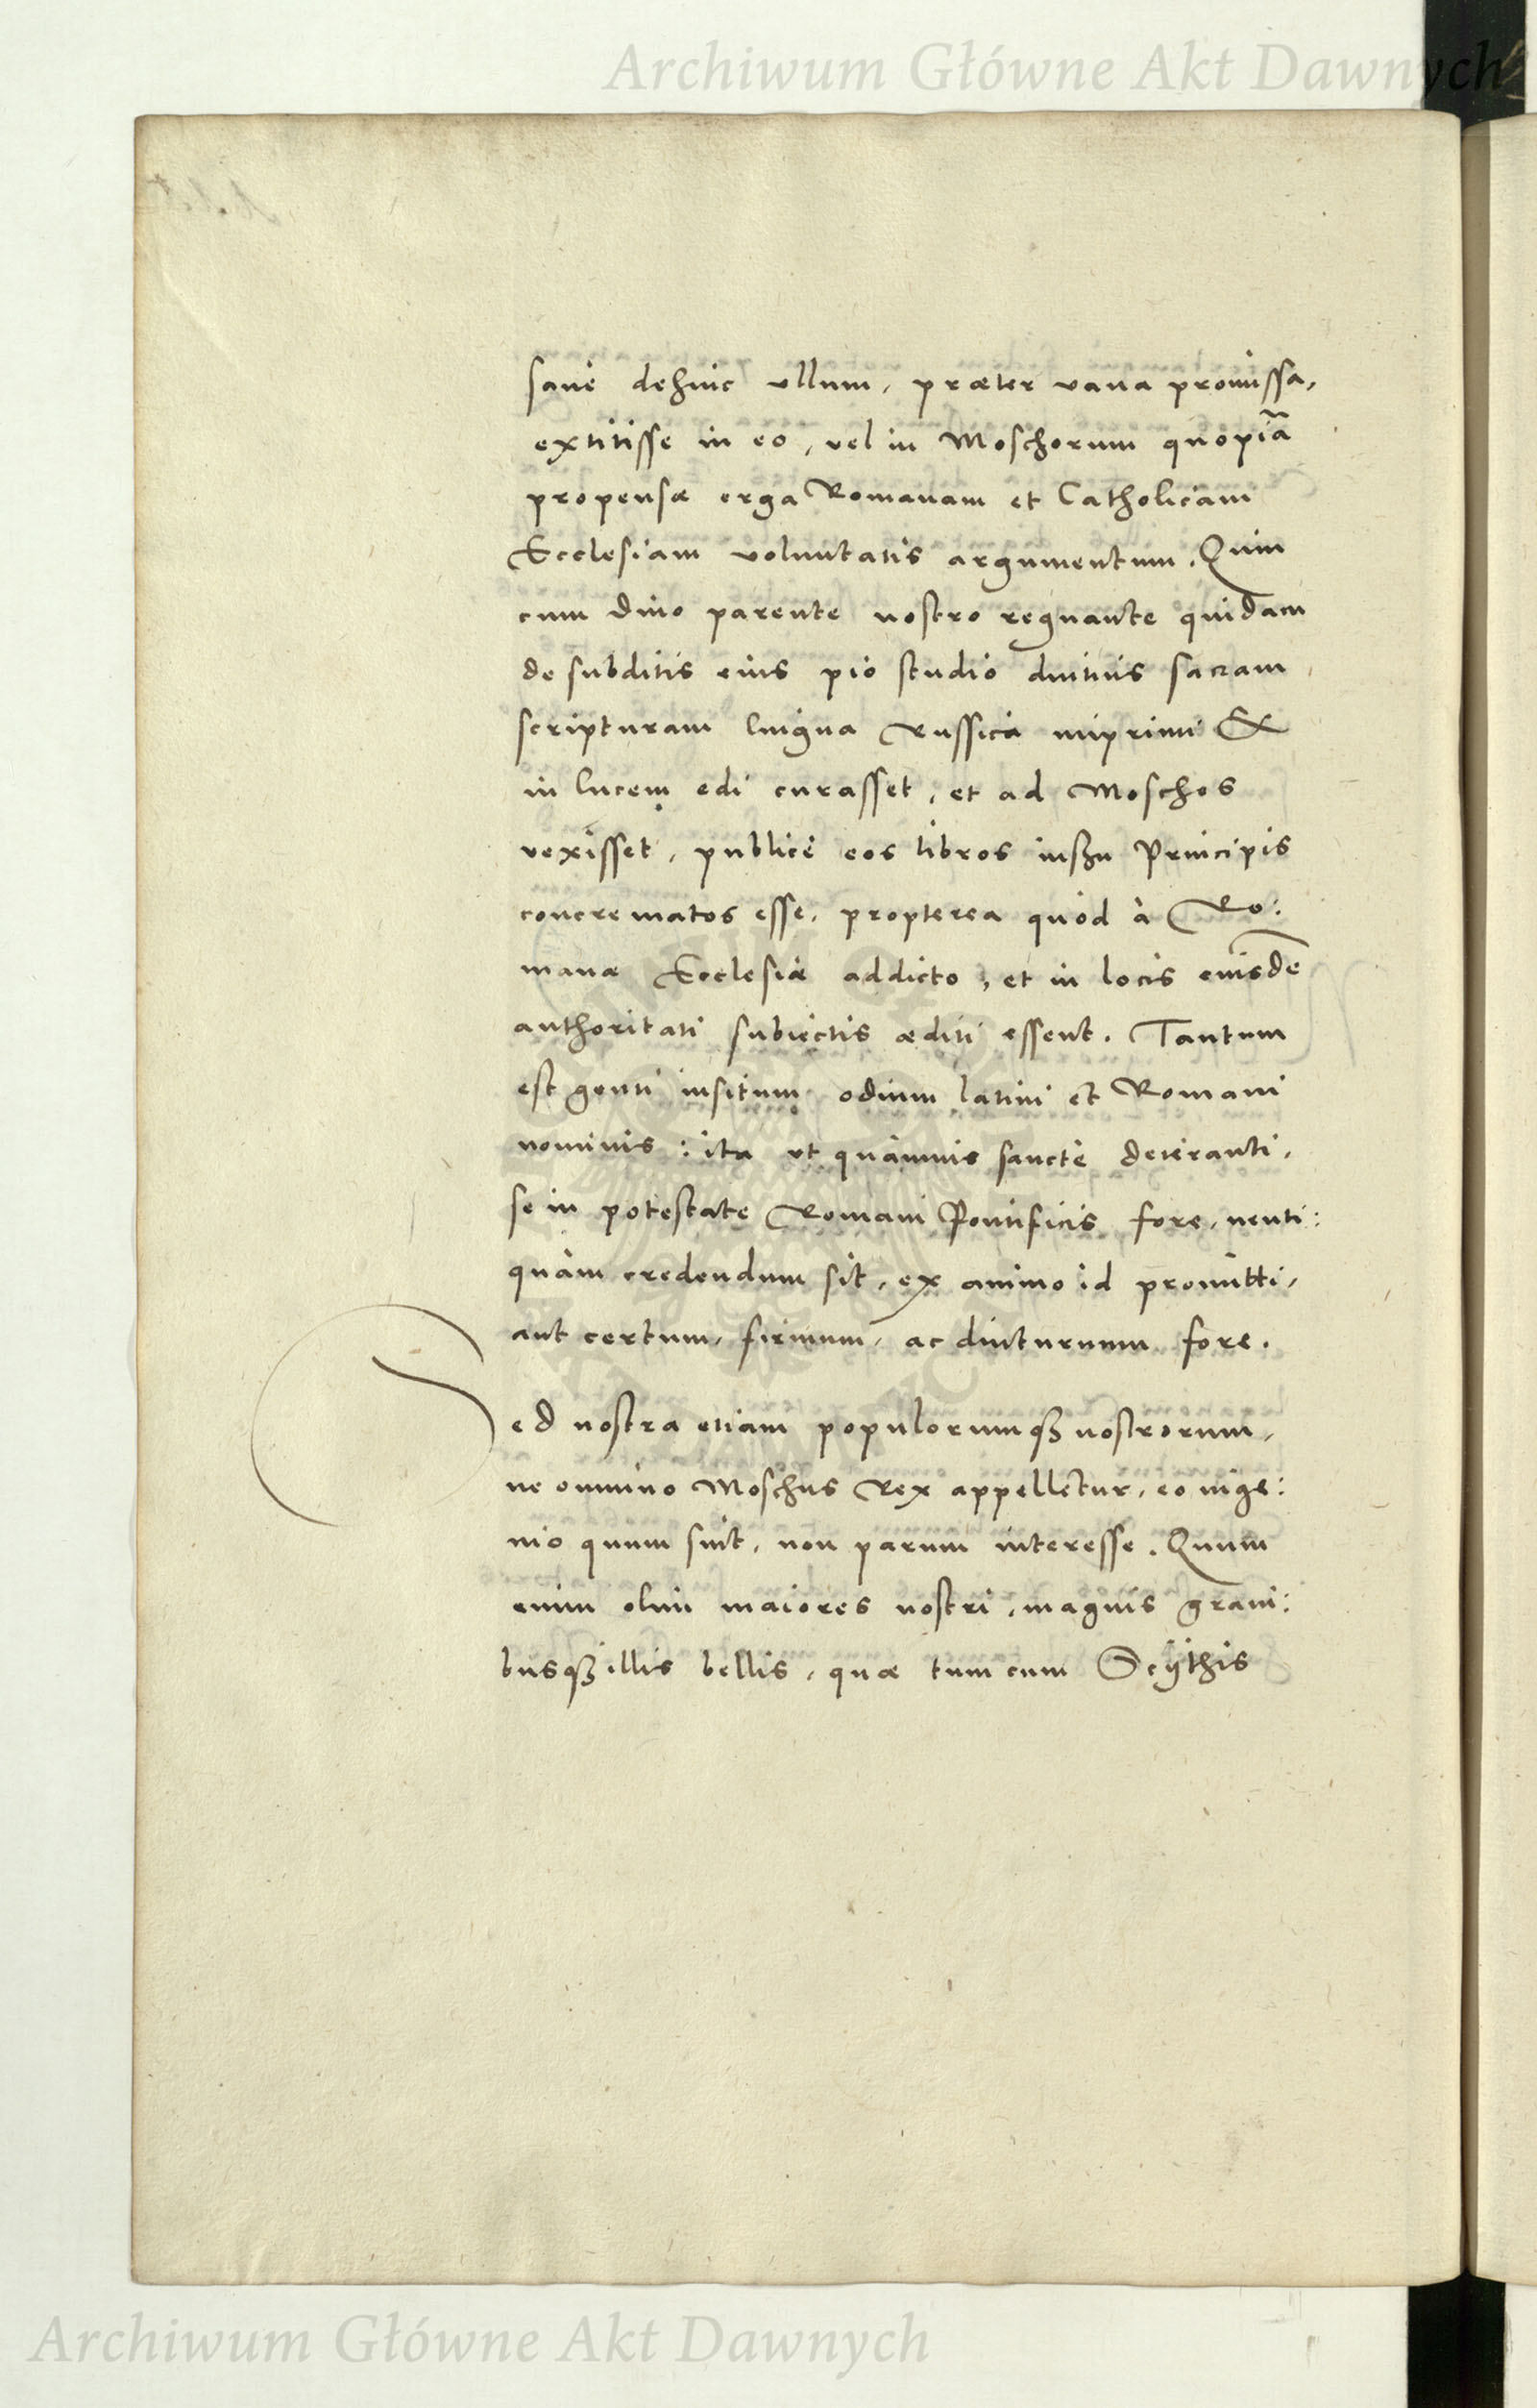 Archiwum Główne Akt Dawnych
sanè dehinc vllum, præter vana promissa,
extitisse in eo, vel in Moschorum quopiã
propensæ erga Romanam et Catholicam
Ecclesiam voluntatis argumentum. Quin
cum diuo parente nostro regnante quidam
de subditis eius pio studio ductus sacram
scripturam lingua Russica imprimi &
in lucem edi curasset, et ad Moschos
vexisset, publicè eos libros iussu Principis
concrematos esse, propterea quòd à Ro:
manæ Ecclesiæ addicto, et in locis eiusdẽ
authoritati subiectis æditi essent. Tantum
est genti insitum odium latini et Romani
nominis: ita vt quàmuis sanctè deieranti,
se in potestate Romani Pontificis fore, neuti:
quàm credendum sit, ex animo id promitti,
aut certum, firmum, ac diuturnum fore.
Sed nostra etiam populorumqȝ nostrorum,
ne omnino Moschus Rex appelletur, eo inge:
nio quum sint, non parum interesse. Quum
enim olim maiores nostri, magnis graui:
busqȝ illis bellis, quæ tum cum Scÿthis
Archiwum Główne Akt Dawnych